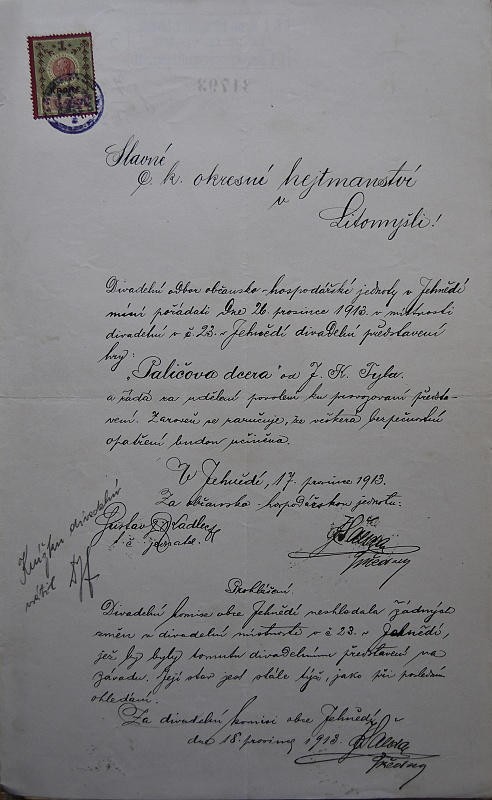 Slavné
c. k. okresné hejtmanství
v
Litomyšli!
Divadelní odbor občansko-hospodářské jednoty v Jehnědí
míní pořádati dne 26. prosince 1913. v místnosti
divadelní v č. 23. v Jehnědí divadelní představení
hry:
"Paličova dcera" od J. K. Tyla.
a žádá za udělení povolení ku provozování předsta-
vení. Zároveň se zaručuje, že veškerá bezpečnostní
opatření budou učiněna.
V Jehnědí, 17. prosince 1913.
Za občansko-hospodářskou jednotu:
Gustav
t. č. jednatel.
Knížku divadelní
vrátil
Prohlášení.
Divadelní komise obce Jehnědí neshledala žádných
změn v divadelní místnosti v č 23. v Jehnědí,
jež by byly tomuto divadelnímu představení na
závadu. Její stav jest stále týž, jako při posledním
ohledání.
Za divadelní komisi obce Jehnědí v
dne 18. prosince 1913.